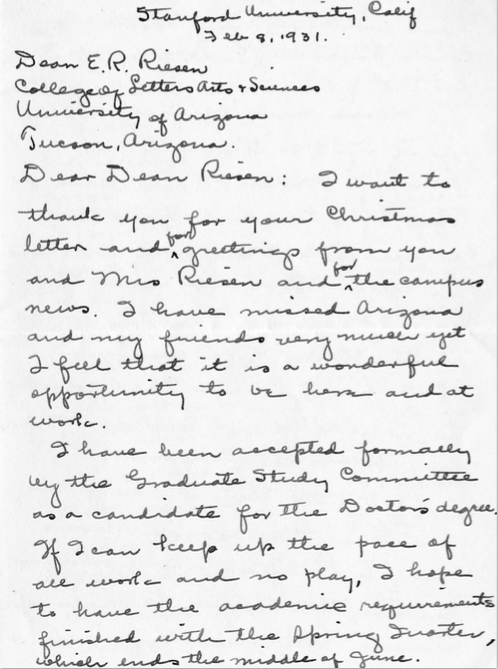 Stanford University, Calif
Feb 8, 1931.
Dean E. R. Riesen
College of Letters Arts & Sciences
University of Arizona
Tucson, Arizona.
Dear Dean Riesen: I want to
thank you for your Christmas
letter and for greetings from you
and Mrs Riesen and for the campus
news. I have missed Arizona
and my friends very much yet
I feel that it is a wonderful
opportunity to be here and at
work.
I have been accepted formally
by the Graduate Study Committee
as a candidate for the Doctor's degree.
If I can keep up the pace of
all work and no play, I hope
to have the academic requirements
finished with the Spring Quarter,
which ends the middle of June.